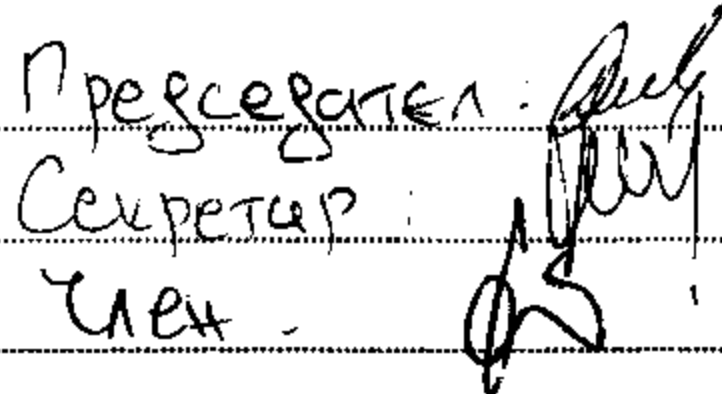 Председател:
Секретар:
Член.